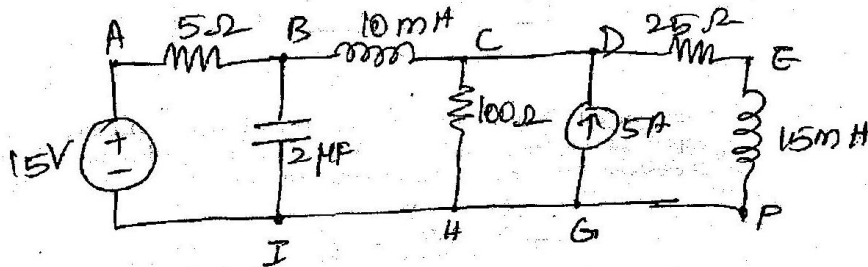 A 5Ω B 10mH C D 25Ω E
15V + - 2µF 100Ω 5A 15mH
I H G P